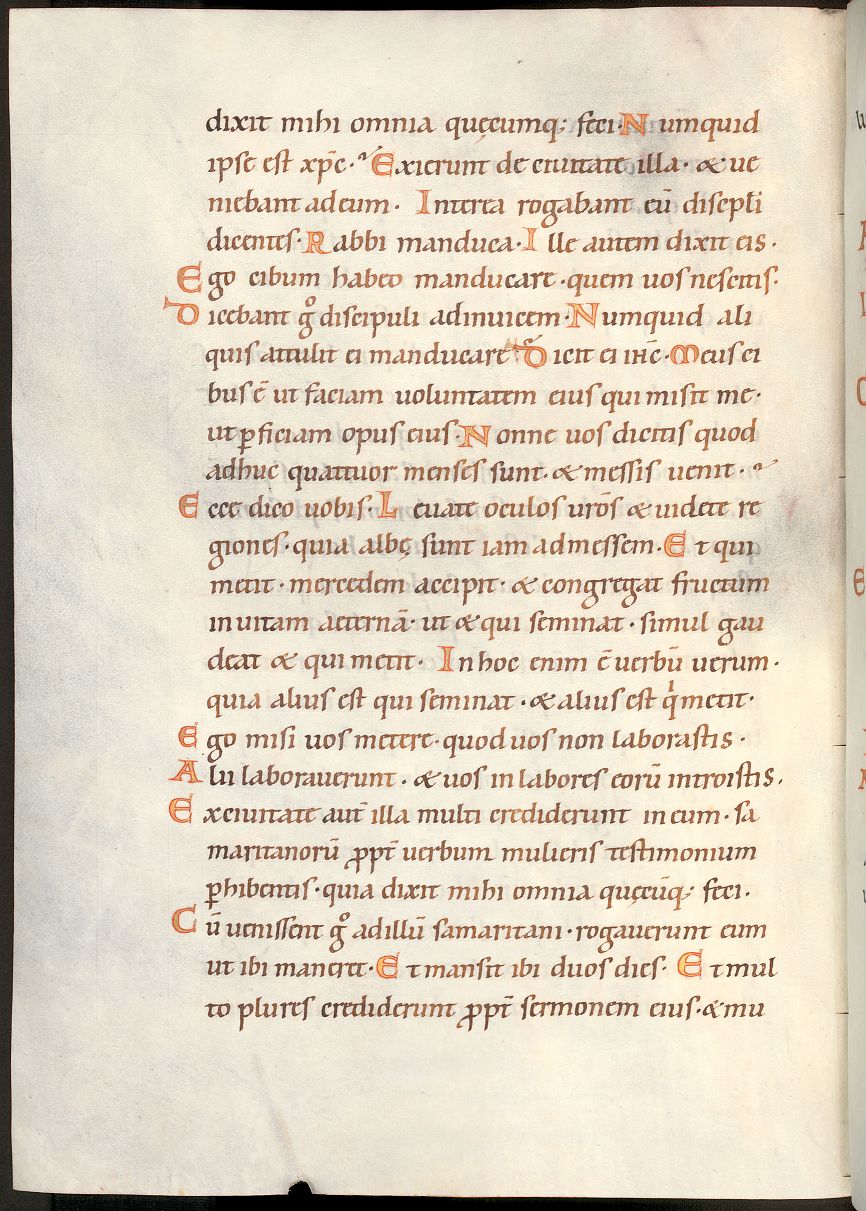 dixit mihi omnia quęcumq; feci· Numquid
ipse est xp̄c· Exierunt de ciuitate illa· & ue
niebant ad eum· Interea rogabant eū discipłi
dicentes· Rabbi manduca· Ille autem dixit eis·
Ego cibum habeo manducare· quem uos nescitis·
Dicebant g̊ discipuli adinuicem· Numquid ali
quis attulit ei manducare Dicit ei ih̄c· Meus ci
bus ē ut faciam uoluntatem eius qui misit me·
ut ꝑficiam opus eius· Nonne uos dicitis quod
adhuc quattuor menses sunt· & messis uenit·
Ecce dico uobis· Leuate oculos ur̄os & uidete re
giones· quia albę sunt iam ad messem· Et qui
metit· mercedem accipit· & congregat fructum
in uitam aeternā· ut & qui seminat· simul gau
deat & qui metit· In hoc enim ē uerbū uerum·
quia alius est qui seminat· & alius est qͥ metit·
Ego misi uos metere· quod uos non laborastis·
Alii laborauerunt· & uos in labores eorū introistis·
Ex ciuitate aut̄ illa multi crediderunt in eum· sa
maritanorū ꝓpt̄ uerbum mulieris testimonium
ꝑhibentis· quia dixit mihi omnia quęcūq; feci·
Cū uenissent g̊ ad illū samaritani· rogauerunt eum
ut ibi maneret· Et mansit ibi duos dies· Et mul
to plures crediderunt ꝓpt̄ sermonem eius· & mu